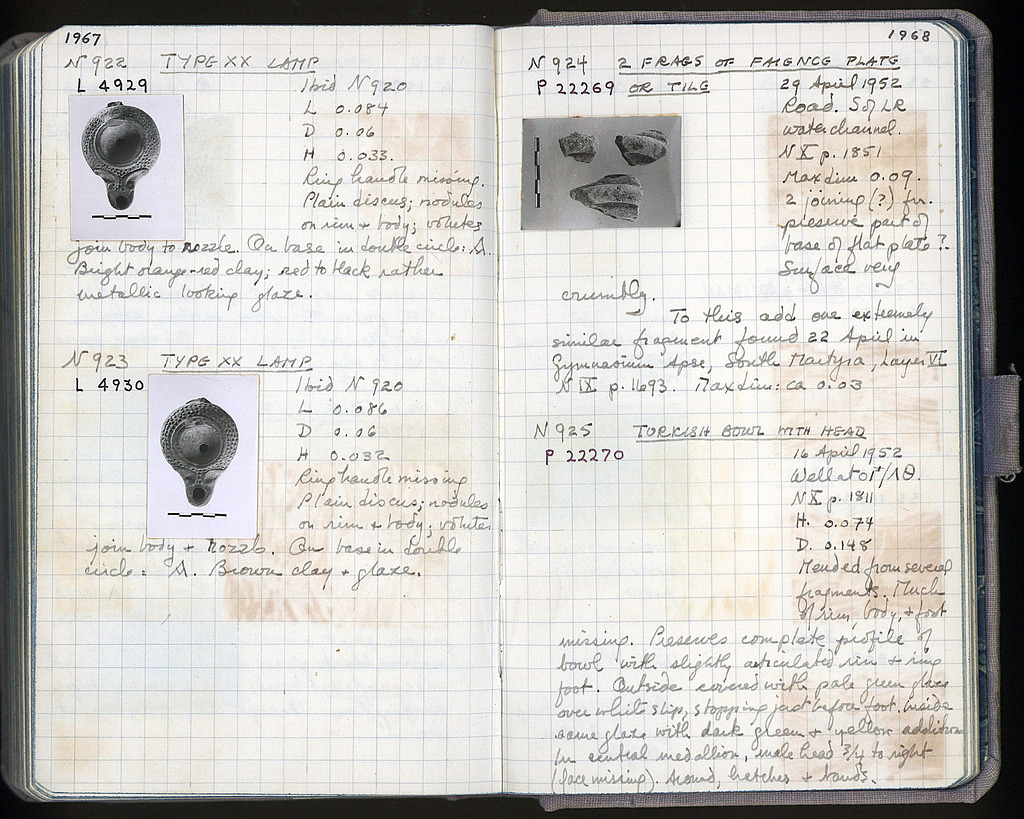 1967
N 922 TYPE XX LAMP
L 4929
Ibid N 920
L 0.084
D 0.06
H 0.033.
Ring handle missing.
Plain discus; nodules
on rim & body; volutes
join body to nozzle. On base in double circle: A.
Bright orange-red clay; red to black rather
metallic looking glaze.
N 923 TYPE XX LAMP
L 4930
Ibid N 920
L 0.086
D 0.06
H 0.032
Ring handle missing
Plain discus; nodules
on rim & body; volutes
join body & nozzle. On base in double
circle: A. Brown clay & glaze.
1968
N 924 2 FRAGS OF FAIENCE PLATE
P 22269 OR TILE
29 April 1952
Road. S of LR
water channel.
N X p. 1851
Max dim 0.09.
2 joining (?) frr.
preserve part of
base of flat plate?
Surface very
crumbly.
To this add one extremely
similar fragment found 22 April in
Gymnasium Apse, South Martyra, Layer VI
N IX p. 1693. Max dim: ca 0.03
N 925 TURKISH BOWL WITH HEAD
P 22270
16 April 1952
Well at
N X p. 1811
H. 0.074
D. 0.148
Mended from several
fragments. Much
of rim, body, & foot
missing. Preserves complete profile of
bowl with slightly articulated rim & ring
foot. Outside covered with pale green glaze
over white slip, stopping just before foot. inside
same glaze with dark green & yellow additions
In central medallion, male head 3/4 to right
(face missing). Around, hatches & bands.